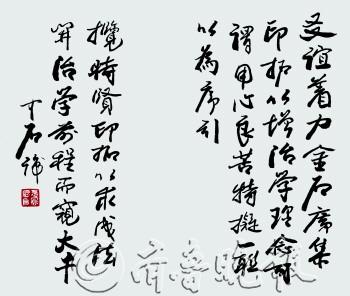 友谊着力金石广集
印拓以增治学理念可
谓用心良苦特撰一联
以为序引
揽时贤印拓以求成法
开治学前程而窥大千
石
齐鲁晚报